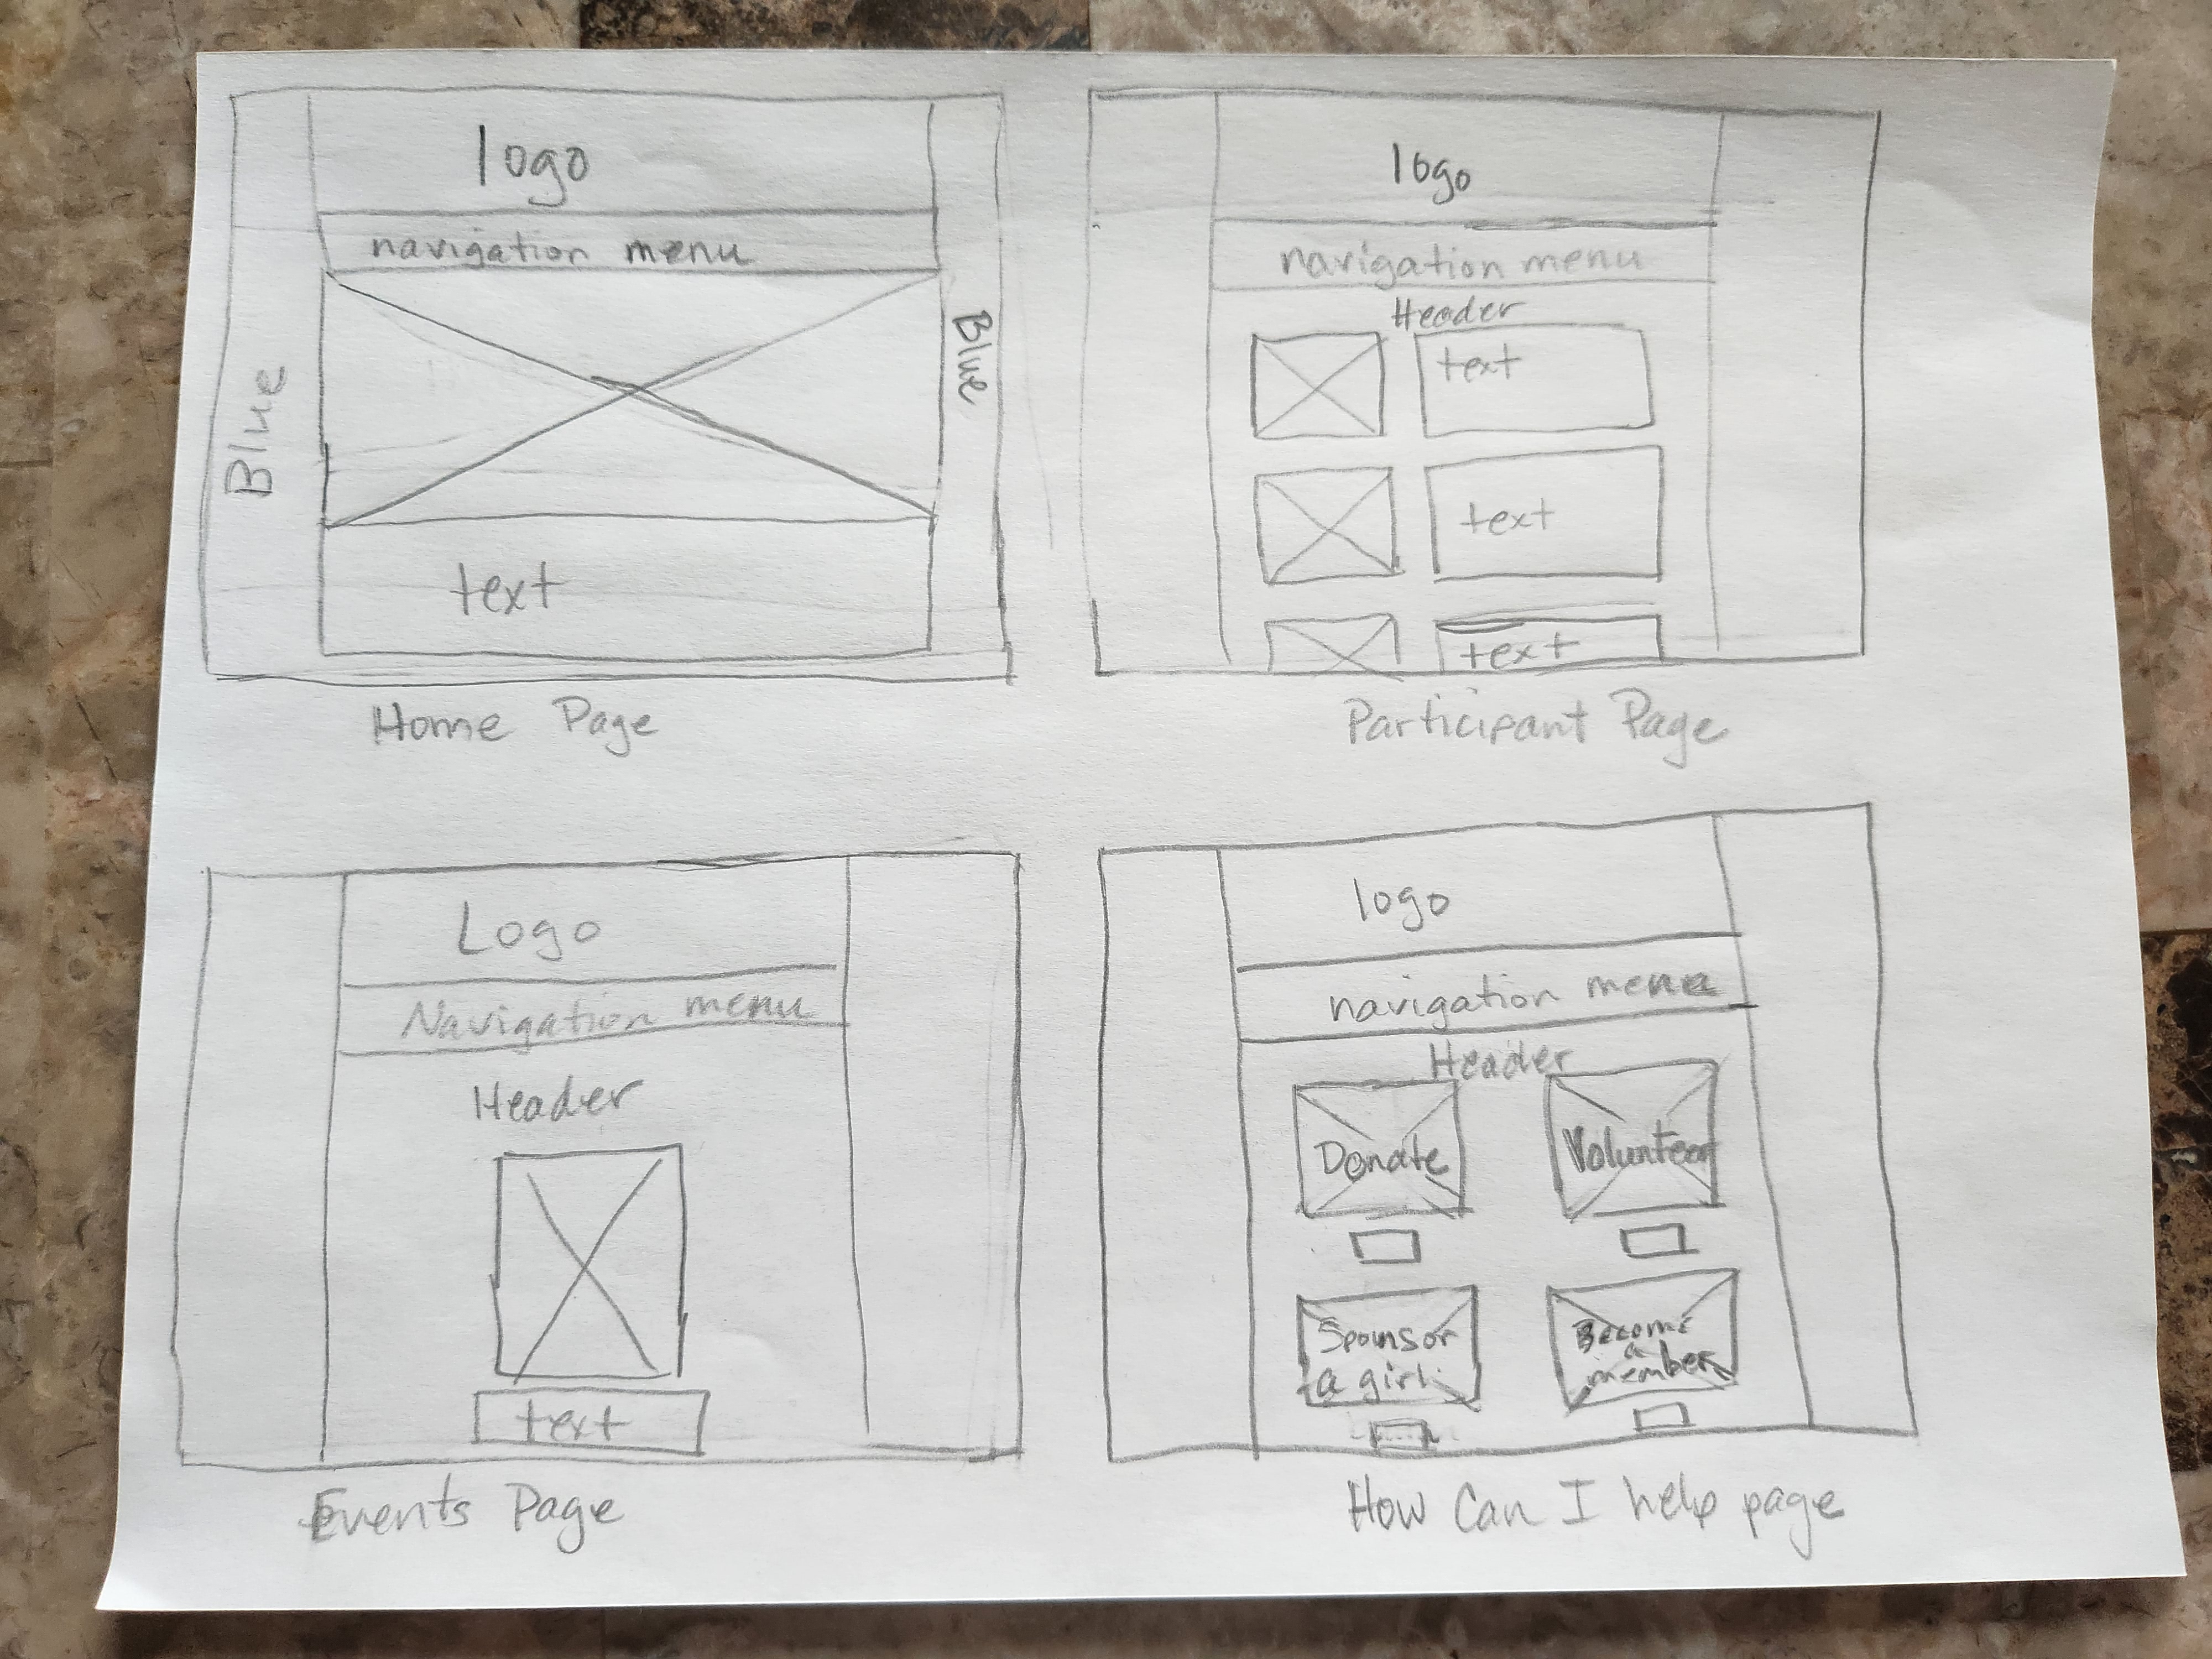 logo
navigation menu
Blue
Blue
text
Home Page
logo
navigation menu
Header
text
text
text
Participant Page
Logo
Navigation menu
Header
text
Events Page
logo
navigation menu
Header
Donate
Volunteer
Sponsor
a girl
Become
a
member
How Can I help page